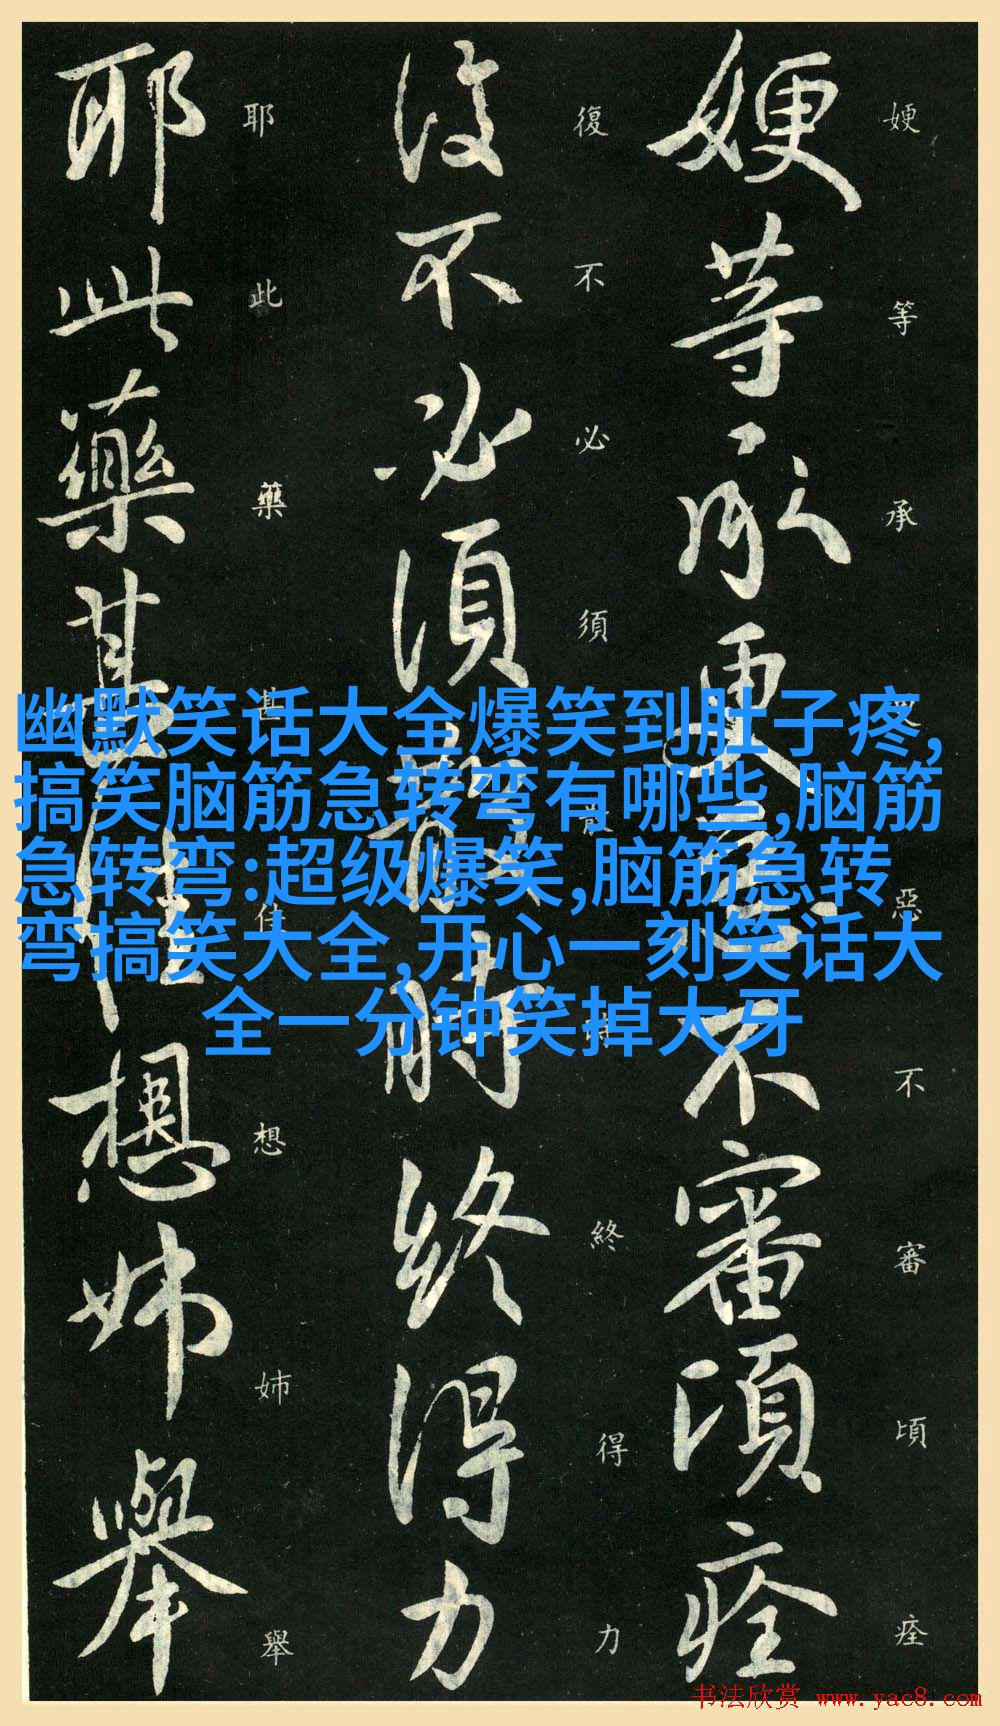 嫂等承更惡不審頃痊
嫂等承更惡不審頃痊
復不必須散時終得力
復不必須散時終得力
耶此藥甚佳想姊舉
耶此藥甚佳想姊舉
幽默笑话大全爆笑到肚子疼,
搞笑脑筋急转弯有哪些,脑筋
急转弯:超级爆笑,脑筋急转
弯搞笑大全,开心一刻笑话大
全一分钟笑掉大牙
书法欣赏 www.yac8.com